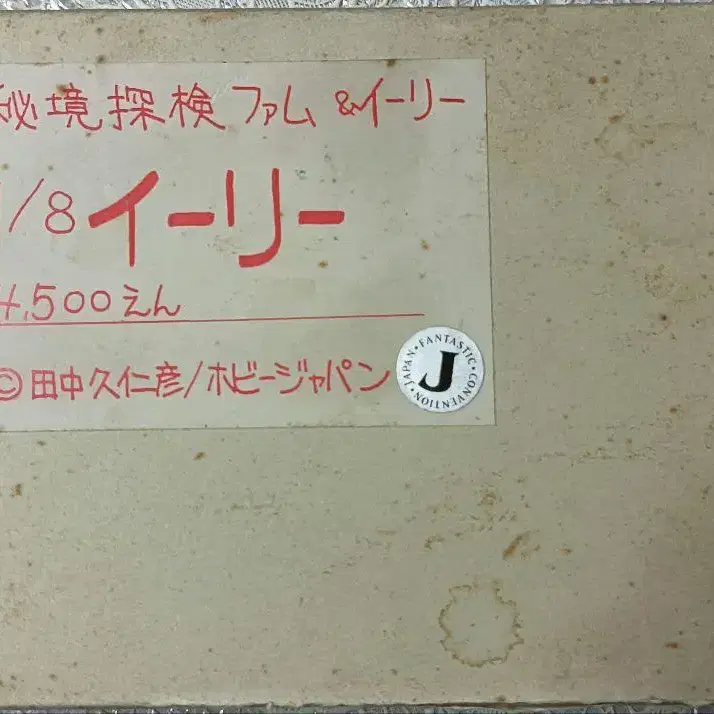 秘境探検ファム&イーリー
1/8イーリー
4,500えん
©田中久仁彦/ホビージャパン
J
・JAPAN・FANTASTIC・CONVENTION